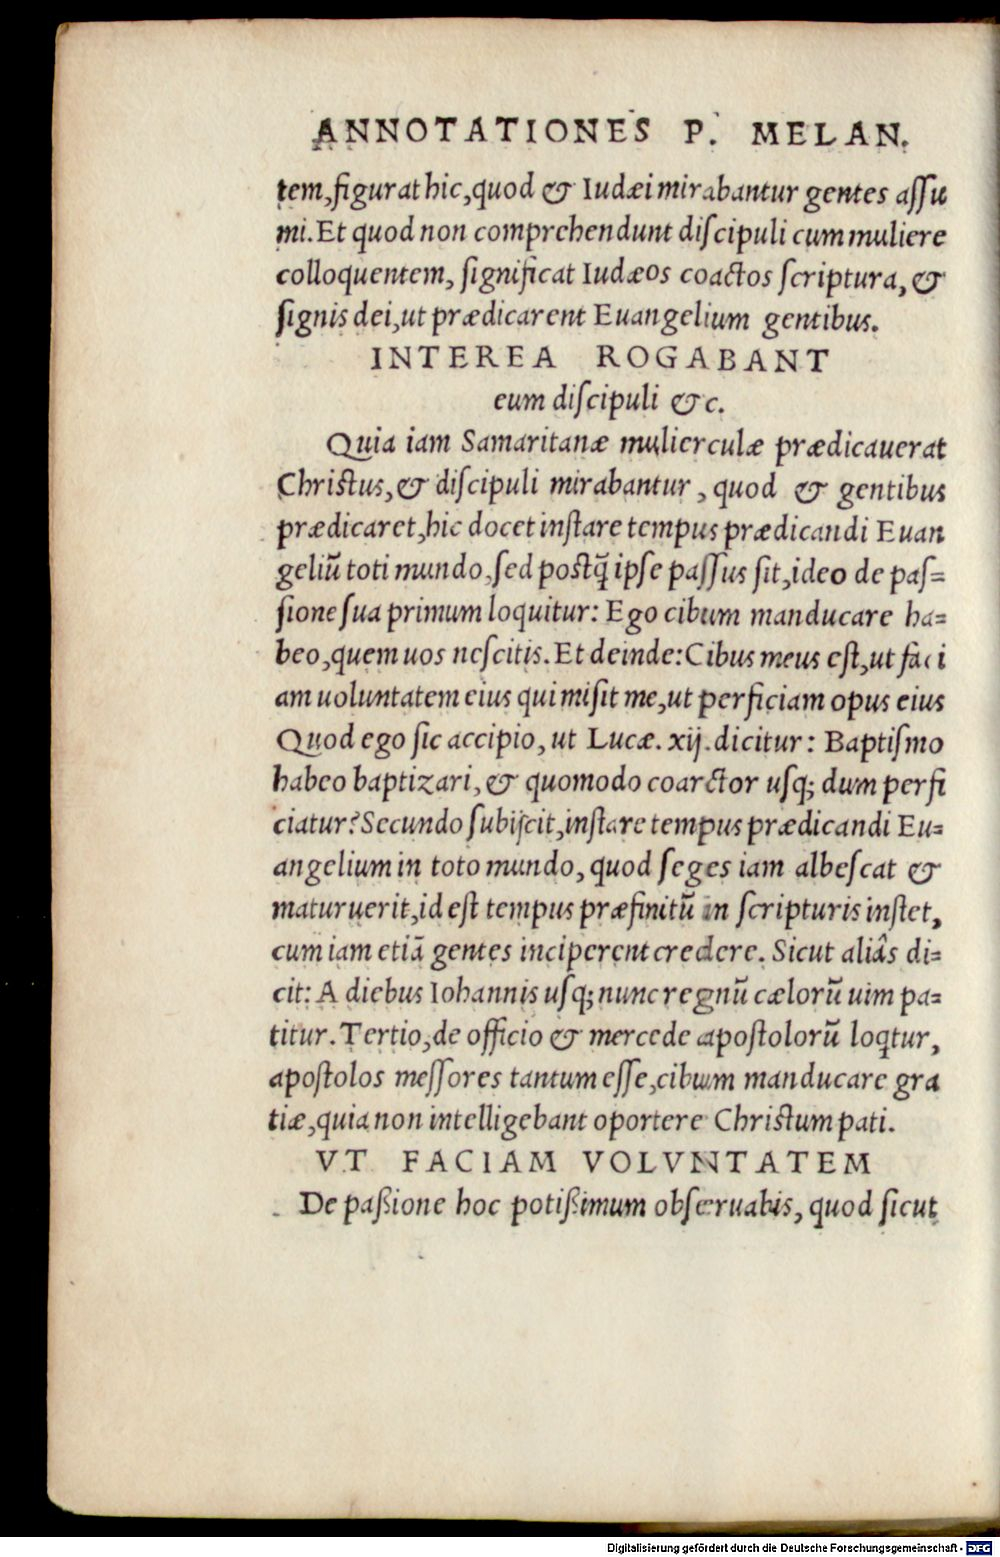 ANNOTATIONES P. MELAN.
tem,figurat hic,quod & Iudæi mirabantur gentes aſſu
mi.Et quod non comprehendunt diſcipuli cum muliere
colloquentem, ſignificat Iudæos coactos ſcriptura, &
ſignis dei,ut prædicarent Euangelium gentibus.
INTEREA ROGABANT
eum diſcipuli &c.
Quia iam Samaritanæ mulierculæ prædicauerat
Chriſtus,& diſcipuli mirabantur, quod & gentibus
prædicaret,hic docet inſtare tempus prædicandi Euan
geliũ toti mundo,ſed poſtq̃ ipſe paſſus ſit,ideo de paſ=
ſione ſua primum loquitur: Ego cibum manducare ha=
beo,quem uos neſcitis.Et deinde:Cibus meus eſt,ut faci
am uoluntatem eius qui miſit me,ut perficiam opus eius
Quod ego ſic accipio, ut Lucæ. xij.dicitur: Baptiſmo
habeo baptizari, & quomodo coarctor uſq; dum perfi
ciatur?Secundo ſubijcit,inſtare tempus prædicandi Eu=
angelium in toto mundo, quod ſeges iam albeſcat &
maturuerit,id eſt tempus præfinitũ in ſcripturis inſtet,
cum iam etiã gentes inciperent credere. Sicut aliâs di=
cit: A diebus Iohannis uſq; nunc regnũ cælorũ uim pa=
titur.Tertio,de officio & mercede apoſtolorũ loqtur,
apoſtolos meſſores tantum eſſe,cibum manducare gra
tiæ,quia non intelligebant oportere Chriſtum pati.
VT FACIAM VOLVNTATEM
De paßione hoc potißimum obſeruabis, quod ſicut
Digitalisierung gefördert durch die Deutsche Forschungsgemeinschaft - DFG